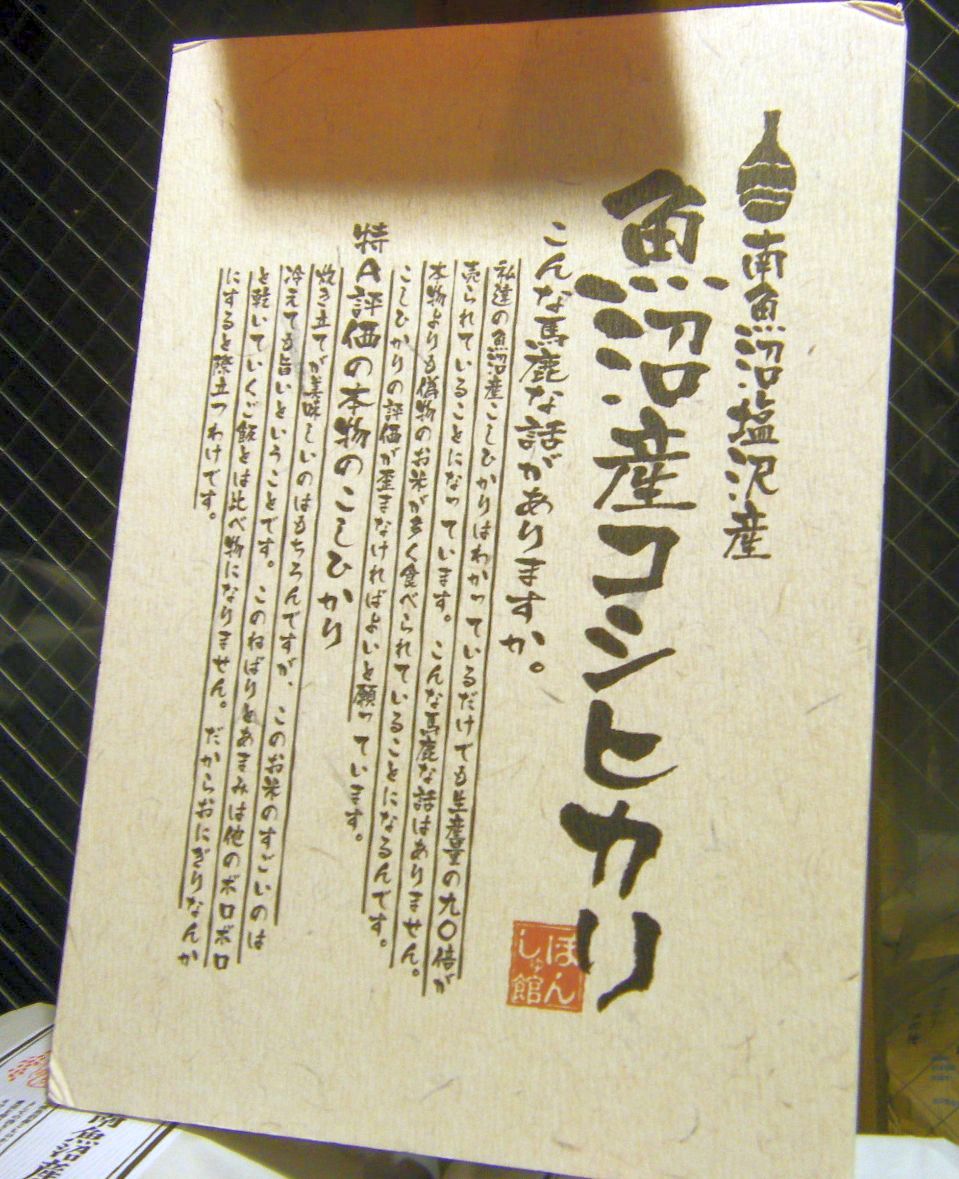 南魚沼塩沢産
魚沼産コシヒカリ
ぽんしゅ館
こんな馬鹿な話がありますか。
私達の魚沼産こしひかりはわかっているだけでも生産量の九〇倍が
売られていることになっています。こんな馬鹿な話はありません。
本物よりも偽物のお米が多く食べられていることになるんです。
こしひかりの評価が歪まなければよいと願っています。
特A評価の本物のこしひかり
炊き立てが美味しいのはもちろんですが、このお米のすごいのは
冷えても旨いということです。このねばりとあまみは他のボロボロ
と乾いていくご飯とは比べ物になりません。だからおにぎりなんか
にすると際立つわけです。
南魚沼産